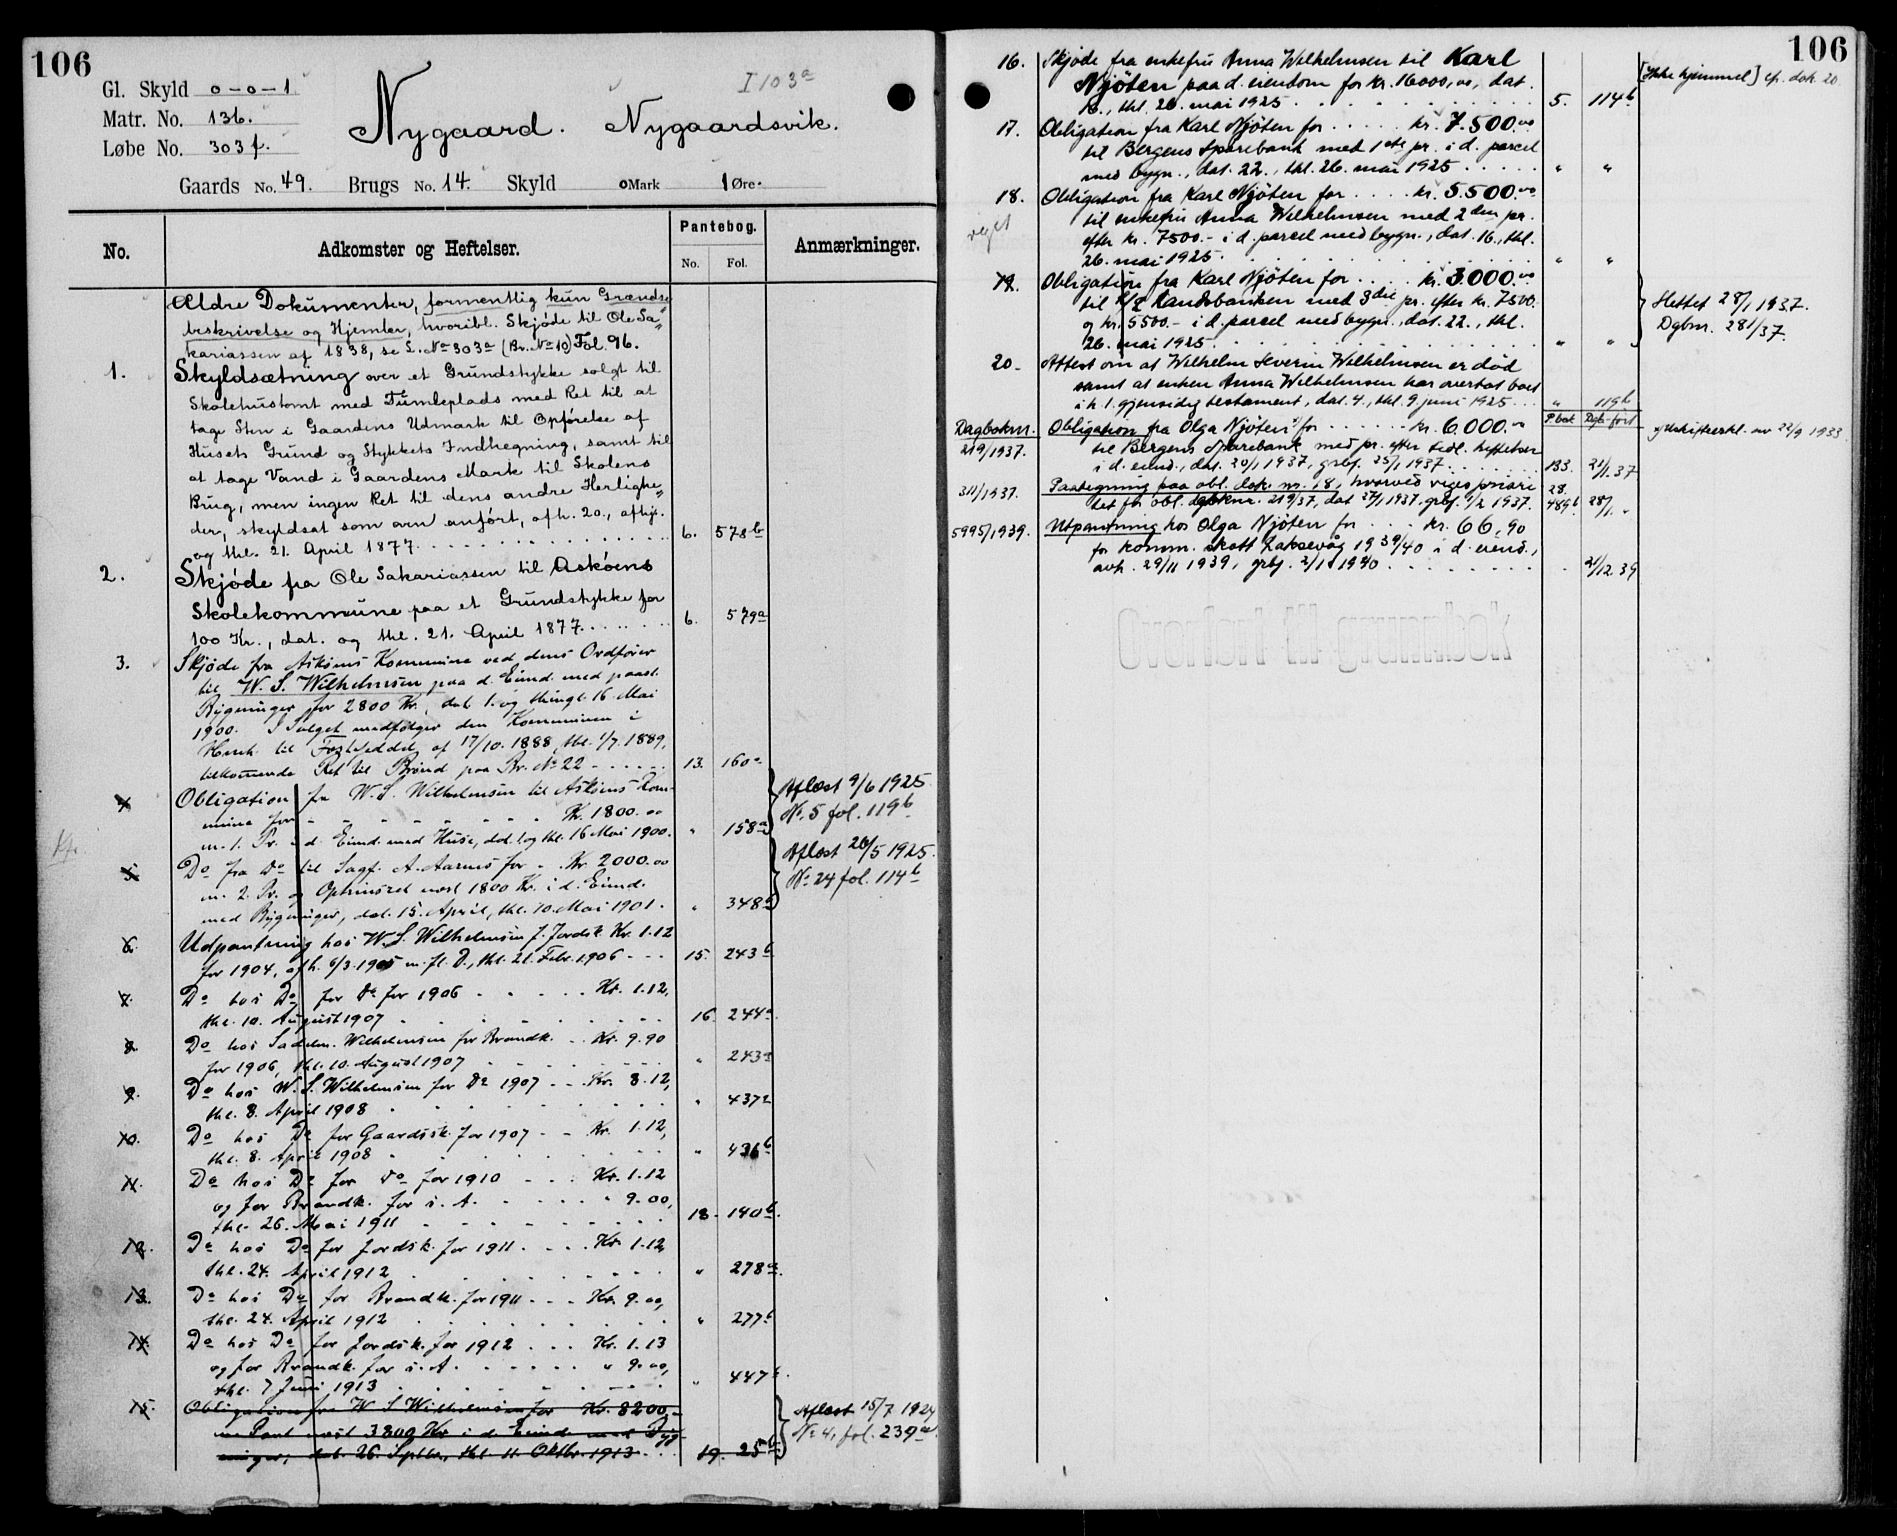 106
Gl. Skyld 0-0-1
Matr. No. 136.
Løbe No. 303f.
I 103a
Nygaard. Nygaardsvik.
Gaards No. 49. Brugs No. 14. Skyld 0 Mark 1 Øre.
No. Adkomster og Heftelser. Pantebog. Anmærkninger.
No. Fol.
Ældre Dokumenter, formentlig kun Grændse
beskrivelse og Hjemler, hvoribl. Skjøde til Ole Sa"
kariassen af 1838, se L. No 303a (Br. No 10) Fol. 96.
1. Skyldsætning over et Grundstykke solgt til
Skolehustomt med Tumleplads med Ret til at
tage Sten i Gaardens Udmark til Opførelse af
Husets Grund og Stykkets Indhegning, samt til
at tage Vand i Gaardens Mark til Skolens
Brug, men ingen Ret til dens andre Herlighe"
der, skyldsat som ovn anført, afh. 20., afhj.
og thl. 21. April 1877. 6. 578b
2. Skjøde fra Ole Sakariassen til Askøens
Skolekommune paa et Grundstykke for
100 Kr., dat. og thl. 21. April 1877. 6. 579a
3. Skjøde fra Askøens Kommune ved dens Ordfører
til W. S. Wilhelmsen paa d. Eiend. med paast.
Bygninger for 2800 Kr., dat. 1. og thingl. 16. Mai
1900. I Salget medfølger den Kommunen i
Henh. til Festeseddel af 17/10. 1888, thl. 1/7. 1889,
tilkommende Ret til Brønd paa Br. No 22 13. 160a
4. Obligation fra W. S. Wilhelmsen til Askøens Kom-
mune for Kr. 1800.00
m. 1. Pr. i d. Eiend. med Huse, dat. 1. og thl. 16 Mai 1900. " 158a
Aflæst 9/6 1925
No. 5 fol. 119b
5. Do fra do til Sagf. A. Aarnes for Kr. 2000.00
m. 2. Pr. og Optrinsret næst 1800 Kr. i d. Eiend.
med Bygninger, dat. 15. April, thl. 10. Mai 1901. " 348a
Aflæst 26/5 1925.
No. 24 fol. 114b
6. Udpantning hos W. S. Wilhelmsen f. Jordsk. Kr. 1.12
for 1904, afh. 6/3. 1905 m. fl. D., thl. 21. Febr. 1906 15. 243b
7. Do hos Do for do for 1906 Kr. 1.12,
thl. 10. August 1907 16. 244a
8. Do hos Sadelm. Wilhelmsen for Brandk. Kr. 9.90
for 1906, thl. 10. August 1907 " 243a
9. Do hos W. S. Wilhelmsen for Do 1907 Kr. 8.12,
thl. 8. April 1908 " 437a
10. Do hos Do for Gaardssk. for 1907 Kr. 1.12,
thl. 8. April 1908 " 436b
11. Do hos Do for do for 1910 Kr. 1.12
og for Brandk. for s. A. " 9.00,
thl. 26. Mai 1911 18. 140b.
12. Do hos Do for Jordsk. for 1911 Kr. 1.12,
thl. 24. April 1912 " 278a.
13. Do hos Do for Brandk. for 1911 Kr. 9.00,
thl. 24. April 1912 " 277b
14. Do hos Do for Jordsk. for 1912 Kr. 1.13
og for Brandk. for s. A. " 9.00,
thl. 7 Juni 1913 " 447b.
15. Obligation fra W S Wilhelmsen for Kr. 8200,-
m Pant næst 3800 Kr i d Eiend med Byg-
ninger, dat. 26. Septbr, thl. 11. Oktbr. 1913 19. 25b
Aflæst 15/7 1924
No. 4, fol. 239a
106
16. Skjøde fra enkefru Anna Wilhelmsen til Karl
Njöten paa d. eiendom for kr. 16000,00, dat.
16., thl. 26. mai 1925. 5. 114b
[Ikke hjemmel] cf. dok. 20.
17. Obligation fra Karl Njöten for kr. 7.500.00
til Bergens Sparebank med 1ste pr. i d. parcel
med bygn., dat. 22., thl. 26. mai 1925 " "
18. Obligation fra Karl Njöten for kr. 5.500.00
til enkefru Anna Wilhelmsen med 2den pr.
efter kr. 7500.- i d. parcel med bygn., dat. 16., thl.
26. mai 1925. " "
veget
19. Obligation fra Karl Njöten for kr. 3.000.00
til A/S Landsbanken med 3die pr. efter kr. 7500.
og kr. 5500.- i d. parcel med bygn., dat. 22., thl.
26. mai 1925 " "
Slettet 28/1 1937.
Dgbnr. 281/37.
20. Attest om at Wilhelm Severin Wilhelmsen er død
samt at enken Anna Wilhelmsen har overtat boet
i h. t. gjensidig testament, dat. 4., thl. 9. juni 1925 " 119b
P.bok Dagb. ført
Dagboknr. Obligation fra Olga Njöten for kr. 6.000.00
219/1937. til Bergens Sparebank med pr. efter tidl. heftelser
i d. eiend., dat. 20/1 1937, grbf. 25/1 1937. 133. 21/1.37
311/1937. Paategning paa obl. dok. nr. 18, hvorved viges priori
tet for obl. dgboknr. 219/37, dat 27/1 1937. grbf. 1/2 1937. 28. 489b 28/1. "
5995/1939. Utpantning hos Olga Njöten for kr. 66,90
for komm. skatt Laksevåg 1939/40 i d. eiend.,
avh. 29/11 1939, grbf. 2/1 1940. 21/12 39
Overført til grunnbok